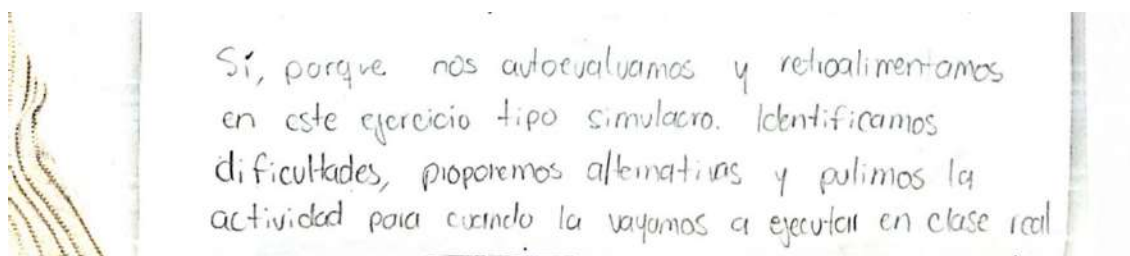 Sí, porque nos autoevaluamos y retroalimentamos
en este ejercicio tipo simulacro. Identificamos
dificultades, proponemos alternativas y pulimos la
actividad para cuando la vayamos a ejecutar en clase real